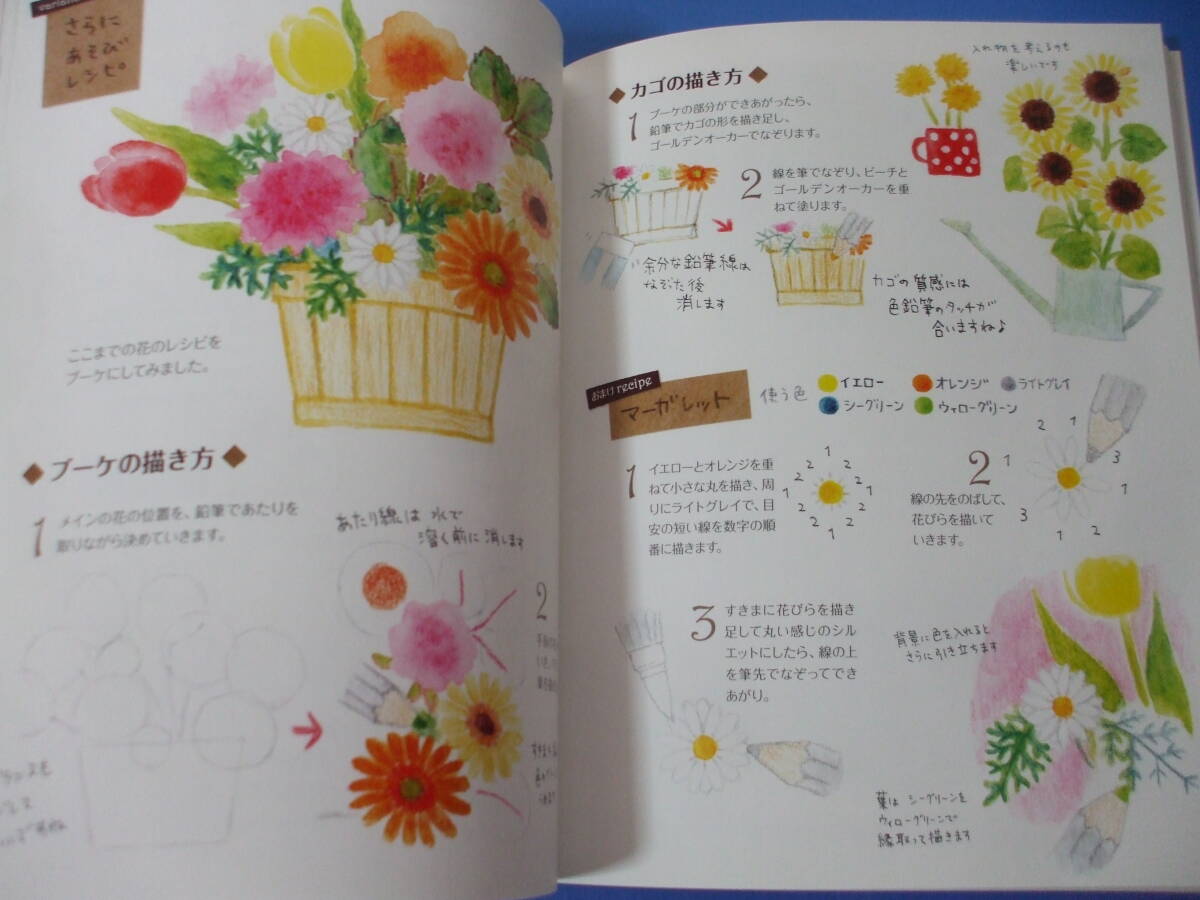 さらに
あそび
レシピ。
ここまでの花のレシピを
ブーケにしてみました。
ブーケの描き方
1
メインの花の位置を、鉛筆であたりを
取りながら決めていきます。
あたり線は 水で
溶く前に 消します
2
カゴの描き方
1
ブーケの部分ができあがったら、
鉛筆でカゴの形を描き足し、
ゴールデンオーカーでなぞります。
入れ物を考えるのも
楽しいです
2
線を筆でなぞり、ピーチと
ゴールデンオーカーを重
ねて塗ります。
余分な鉛筆線は
なぞった後
消します
カゴの質感には
色鉛筆のタッチが
合いますね♪
おまけ recipe
マーガレット
使う色
イエロー
オレンジ
ライトグレイ
シーグリーン
ウィローグリーン
1
イエローとオレンジを重
ねて小さな丸を描き、周
りにライトグレイで、目
安の短い線を数字の順
番に描きます。
1
2 2
2 2
1 1
2 2
2 2
1
2
線の先をのばして、
花びらを描いて
いきます。
2 1
1 3
1
3
1 2
3
すきまに花びらを描き
足して丸い感じのシル
エットにしたら、線の上
を筆先でなぞってでき
あがり。
背景に色を入れると
さらに引き立ちます
葉は シーグリーンを
ウィローグリーンで
縁取って描きます